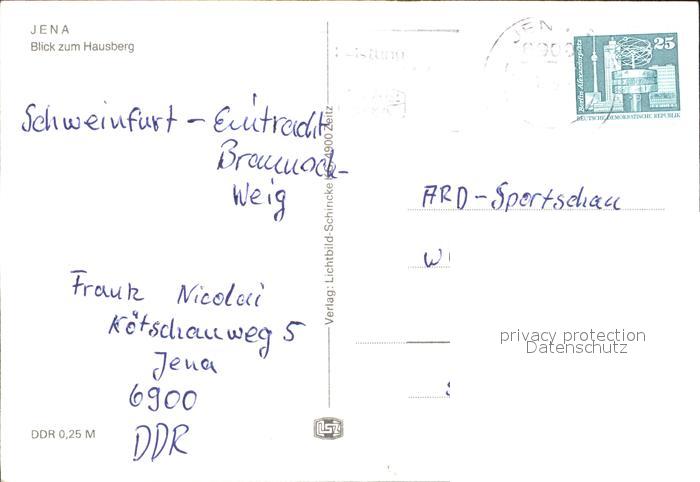 JENA
Blick zum Hausberg
JENA
6900
25
Berlin, Alexanderplatz
DEUTSCHE DEMOKRATISCHE REPUBLIK
Schweinfurt - Eintracht
Braunsch-
Weig
ARD-Sportschau
W
Frank Nicolai
Kötschauweg 5
Jena
6900
DDR
privacy protection
Datenschutz
Verlag: Lichtbild-Schincke KG 4900 Zeitz
DDR 0,25 M